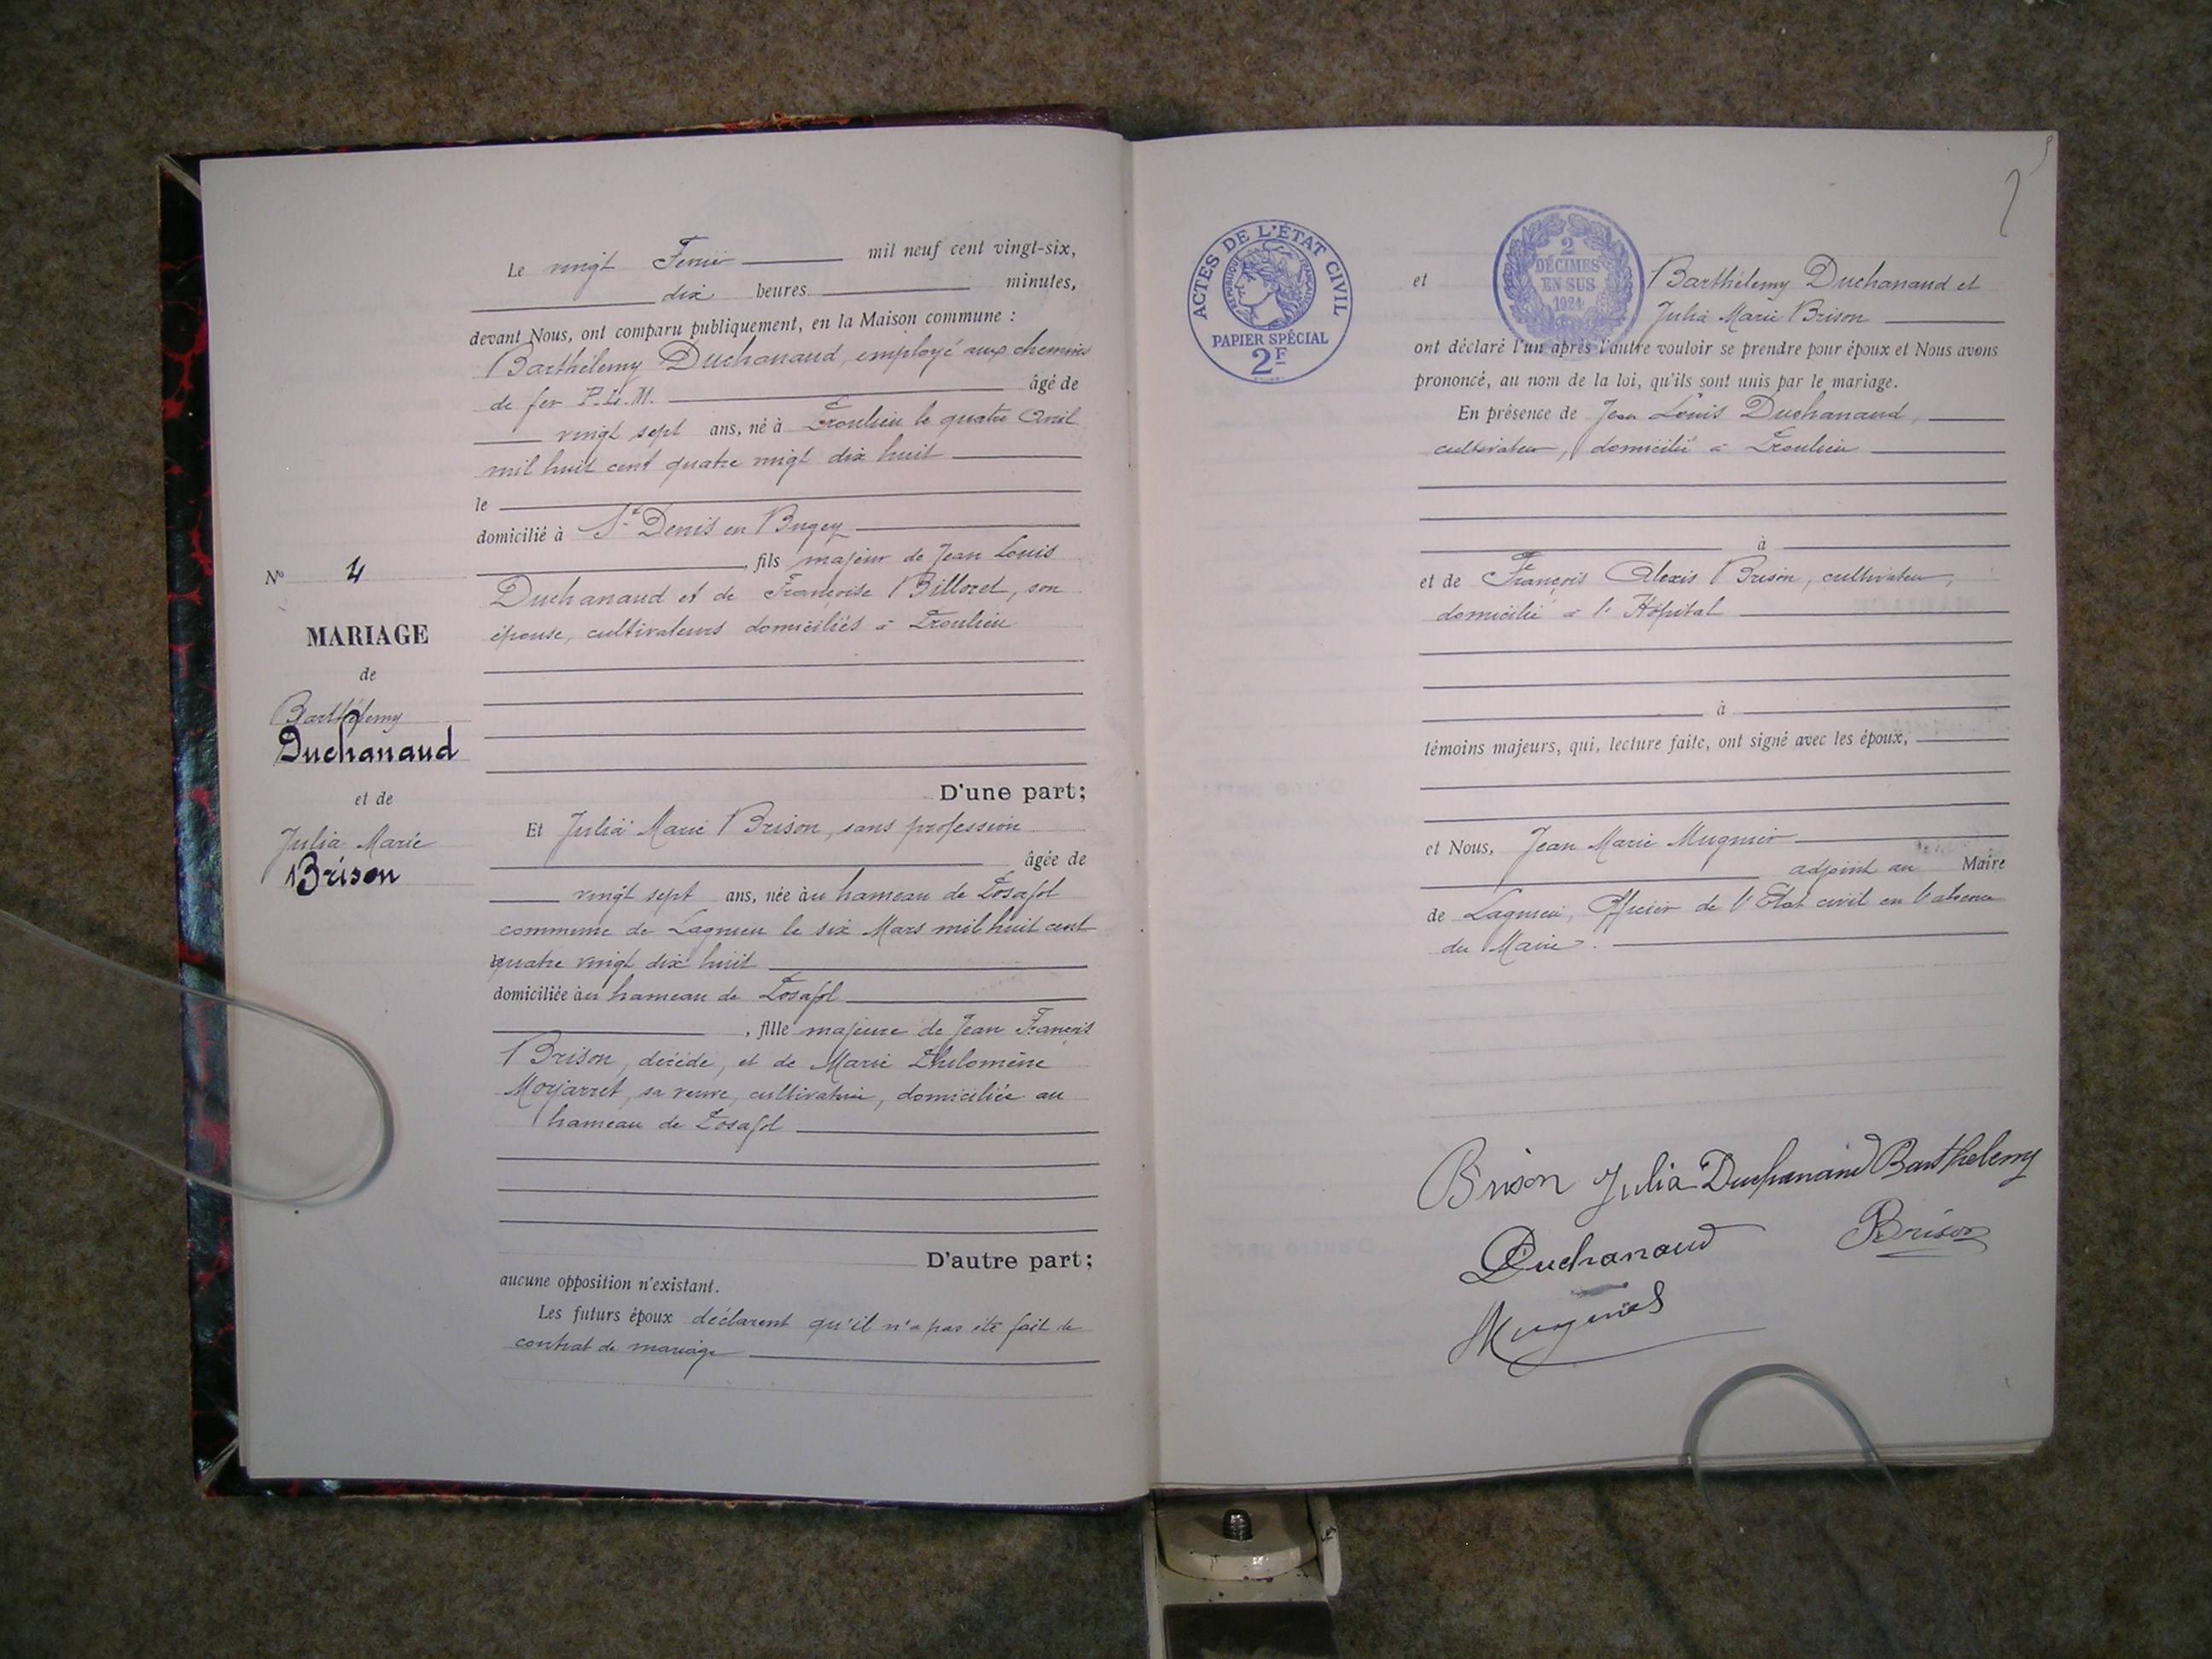 Le vingt Fevrier mil neuf cent vingt-six,
dix heures minutes,
devant Nous, ont comparu publiquement, en la Maison commune :
Barthélemy Duchanaud, employé aux chemins
de fer P. L. M. âgé de
vingt sept ans, né à Proulieu le quatre Avril
mil huit cent quatre vingt dix huit
le
domicilié à St Denis en Bugey
, fils majeur de Jean Louis
Duchanaud et de Françoise Billoret, son
épouse, cultivateurs domiciliés à Proulieu
D'une part;
Et Julia Marie Brison, sans profession
âgée de
vingt sept ans, née au hameau de Posafol
commune de Lagnieu le six Mars mil huit cent
quatre vingt dix huit
domiciliée au hameau de Posafol
, fille majeure de Jean François
Brison, décédé, et de Marie Philomène
Morjarret, sa veuve, cultivatrice, domiciliée au
hameau de Posafol
D'autre part;
aucune opposition n'existant.
Les futurs époux déclarent qu'il n'a pas été fait de
contrat de mariage
No 4
MARIAGE
de
Barthélemy
Duchanaud
et de
Julia Marie
Brison
ACTES DE L'ÉTAT CIVIL
RÉPUBLIQUE FRANÇAISE
PAPIER SPÉCIAL
2F
2
DÉCIMES
EN SUS
1924
et Barthélemy Duchanaud et
Julia Marie Brison
ont déclaré l'un après l'autre vouloir se prendre pour époux et Nous avons
prononcé, au nom de la loi, qu'ils sont unis par le mariage.
En présence de Jean Louis Duchanaud,
cultivateur, domicilié à Proulieu
à
et de François Alexis Brison, cultivateur,
domicilié à l'Hôpital
à
témoins majeurs, qui, lecture faite, ont signé avec les époux,
et Nous, Jean Marie Mugnier
adjoint au Maire
de Lagnieu, Officier de l'Etat civil en l'absence
du Maire.
Brison Julia Duchanaud Barthelemy
Duchanaud Brison
Mugnier